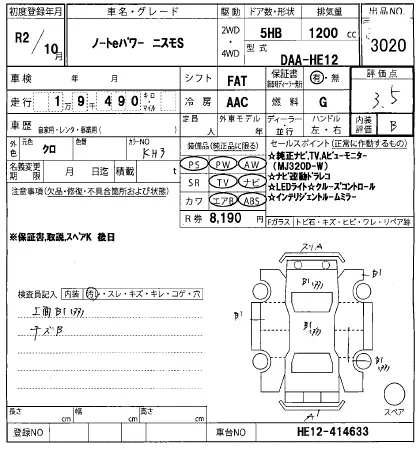 初度登録年月 車名・グレード 駆動 ドア数・形状 排気量 出品NO.
R2/10月 ノートeパワー ニスモS 2WD・4WD 5HB 1200 cc 3020
型式
DAA-HE12
車検 年 月 シフト FAT 保証書 有・無 評価点
走行 1万9千490 キロ・マイル 冷房 AAC 燃料 G 3.5
車歴 自家用・レンタ・事業用( ) 定員 人 外車モデル 年 ディーラー・並行 ハンドル 左・右 内装評価 B
外色 元色 クロ 色替 カラーNO KH3 装備品(純正品に限る) セールスポイント(正常に作動するもの)
PS PW AW ☆純正ナビ,TV,Aビューモニター
名義変更期限 月 日迄 積載 t (MJ320D-W)
SR TV ナビ ☆ナビ連動ドラレコ
注意事項(欠品・修復・不具合箇所および状態) ☆LEDライト☆クルーズコントロール
カワ エアB ABS ☆インテリジェントルームミラー
R券 8,190 円 Fガラス トビ石・キズ・ヒビ・ワレ・リペア跡
※保証書,取説,スペアK 後日
スリA
B1
B1
検査員記入 内装 汚・スレ・キズ・キレ・コゲ・穴
B1
キズB
スペア
A1
長さ cm 幅 cm 高さ cm
登録NO 車台NO HE12-414633